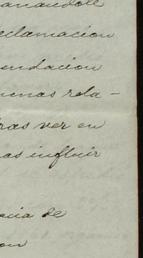 anandole
eclamacion
endacion
uenas rela-
ras ver en
as influir
cia de
on